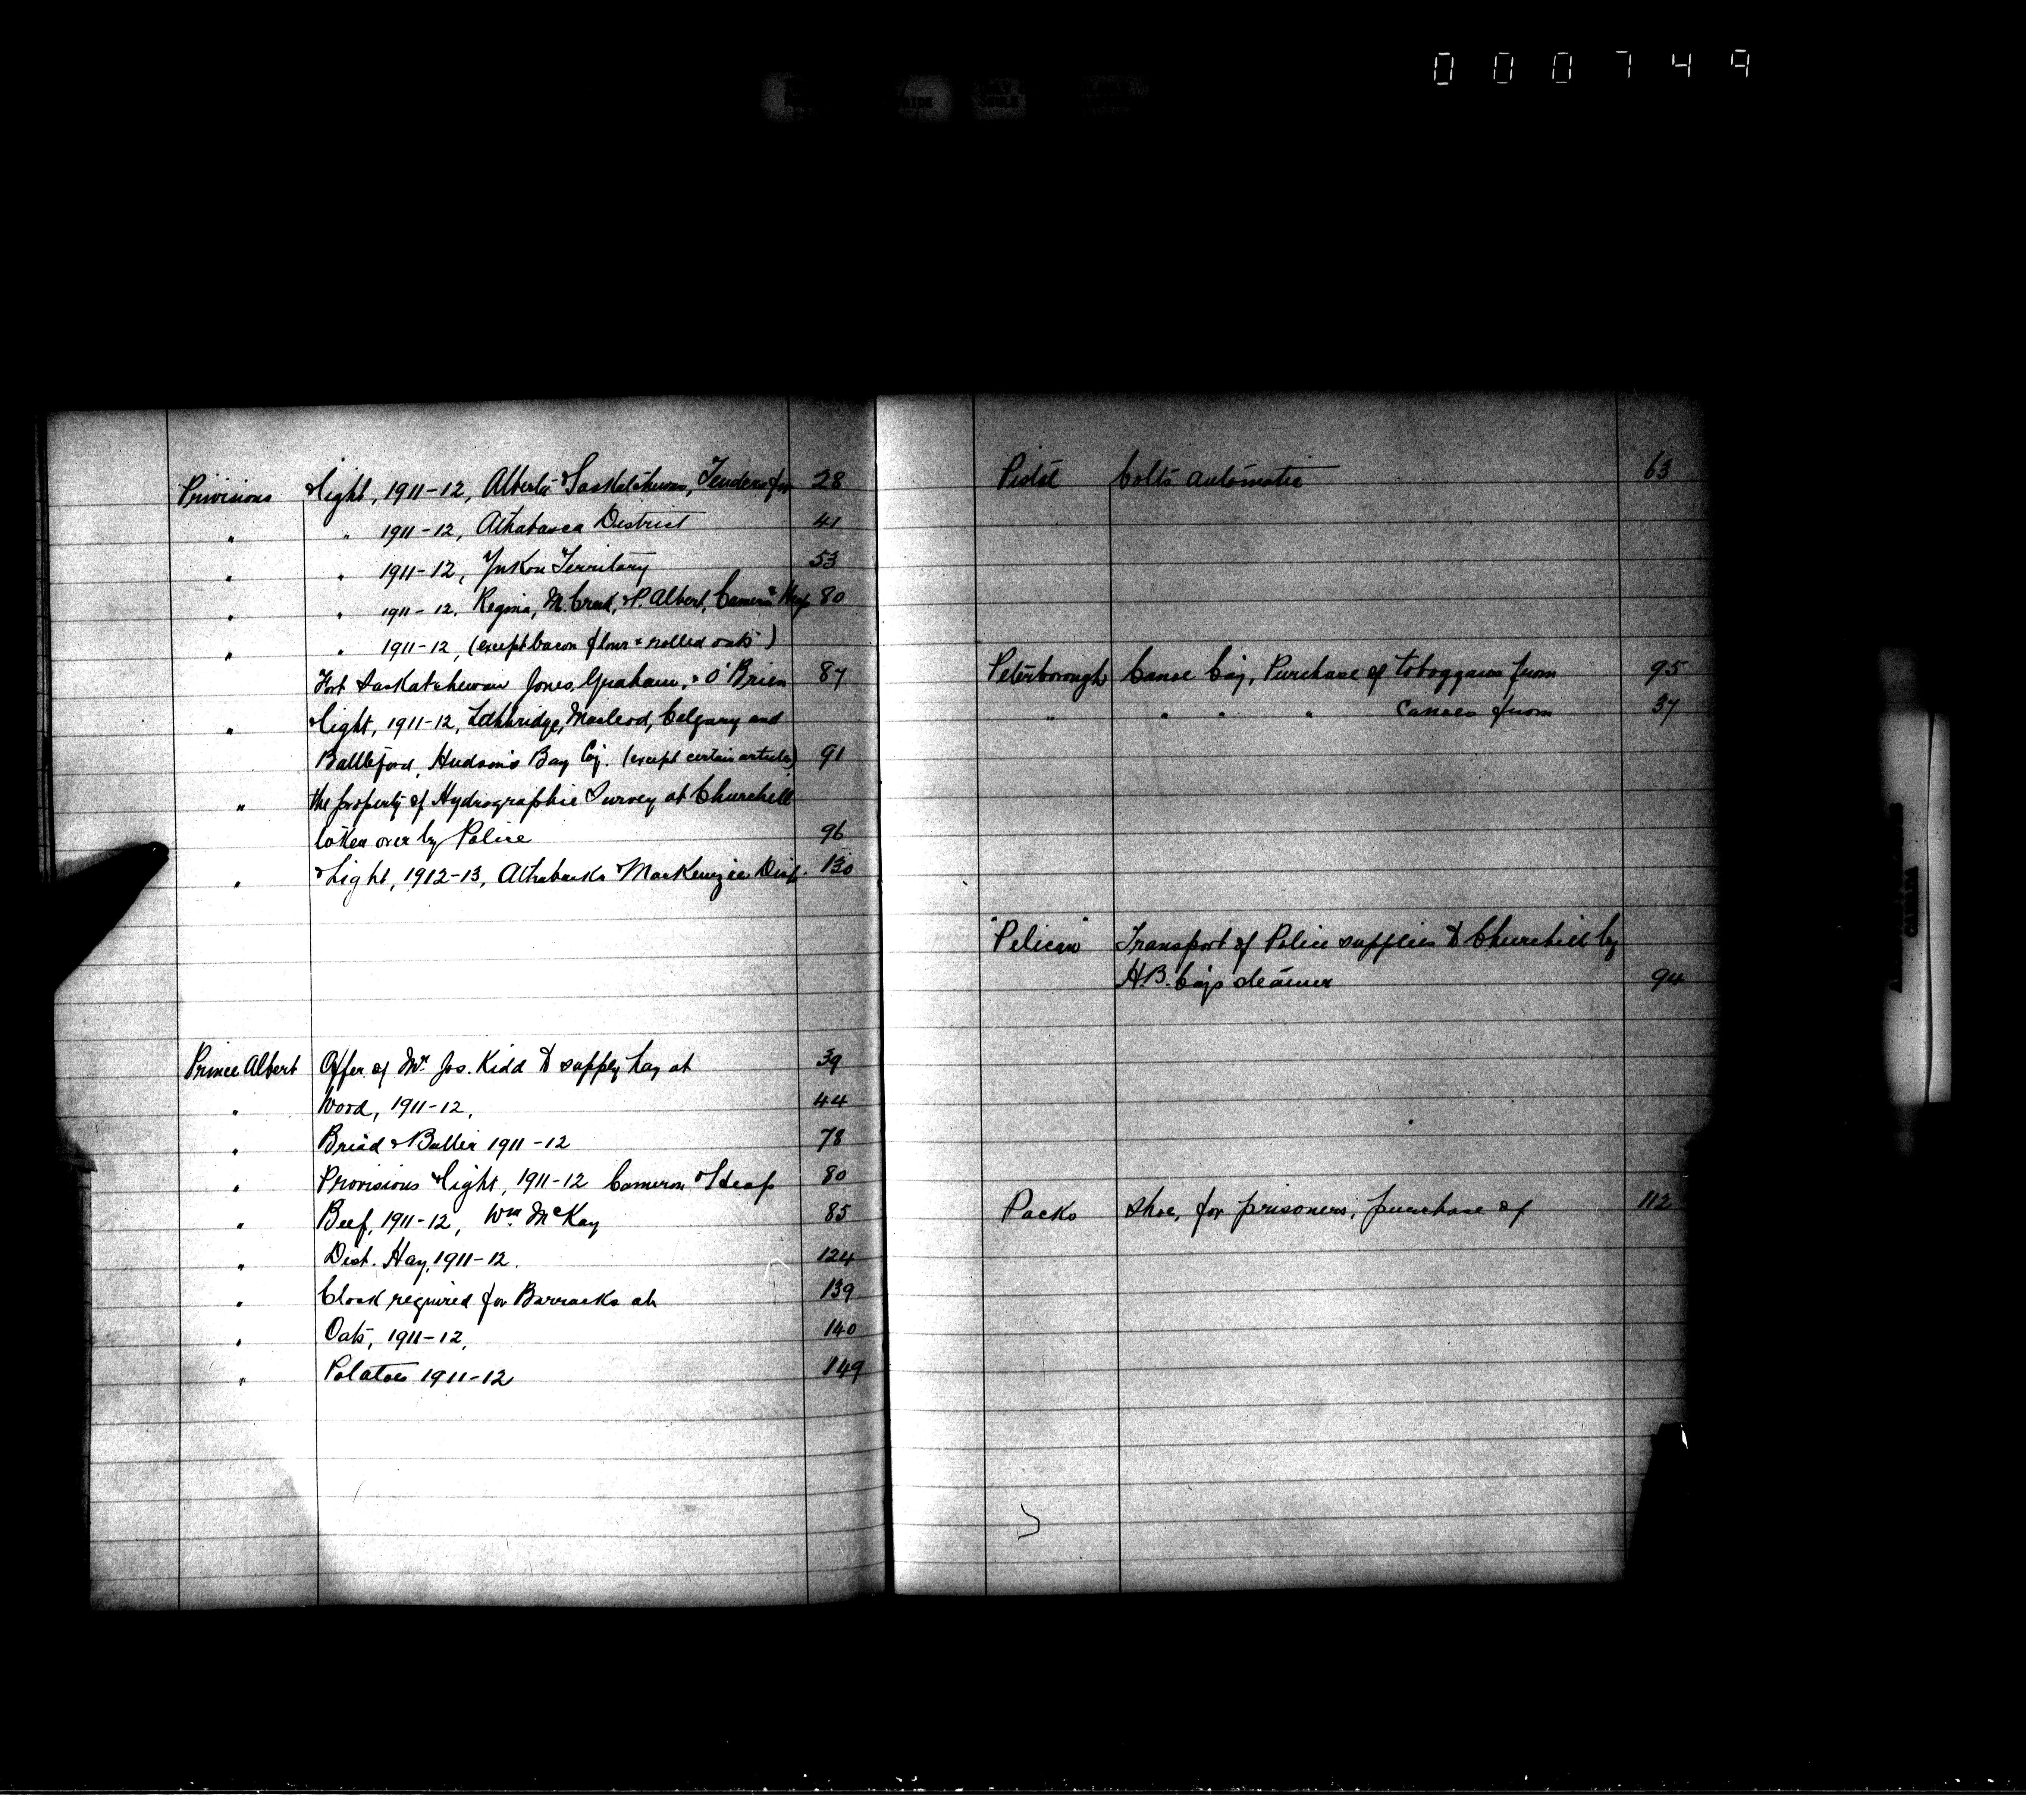 000749
Provisions & light, 1911-12, Alberta & Saskatchewan, Tenders for 28
" " 1911-12, Athabasca District 41
" " 1911-12, Yukon Territory 53
" " 1911-12, Regina, M. Creek, & P. Albert, Cameron & Heap 80
" " 1911-12, (except bacon flour & rolled oats)
Fort Saskatchewan Jones, Graham, & O'Brien 87
" & light, 1911-12, Lethbridge, Macleod, Calgary and
Battleford, Hudson's Bay Coy. (except certain articles) 91
" the property of Hydrographic Survey at Churchill
taken over by Police 96
" & Light, 1912-13, Athabaska & MacKenzie Dist. 130
Prince Albert Offer of Mr. Jos. Kidd to supply hay at 39
" Wood, 1911-12, 44
" Bread & Butter 1911-12 78
" Provisions & light, 1911-12 Cameron & Heap 80
" Beef, 1911-12, Wm. McKay 85
" Dist. Hay, 1911-12. 124
" Clock required for Barracks at 139
" Oats, 1911-12, 140
" Potatoes 1911-12 149
Pistol Colts automatic 63
Peterborough Canoe Coy, Purchase of toboggans from 95
" " " " Canoes from 37
"Pelican" Transport of Police supplies to Churchill by
H.B. Coys steamer 94
Packs shoe, for prisoners, purchase of 112